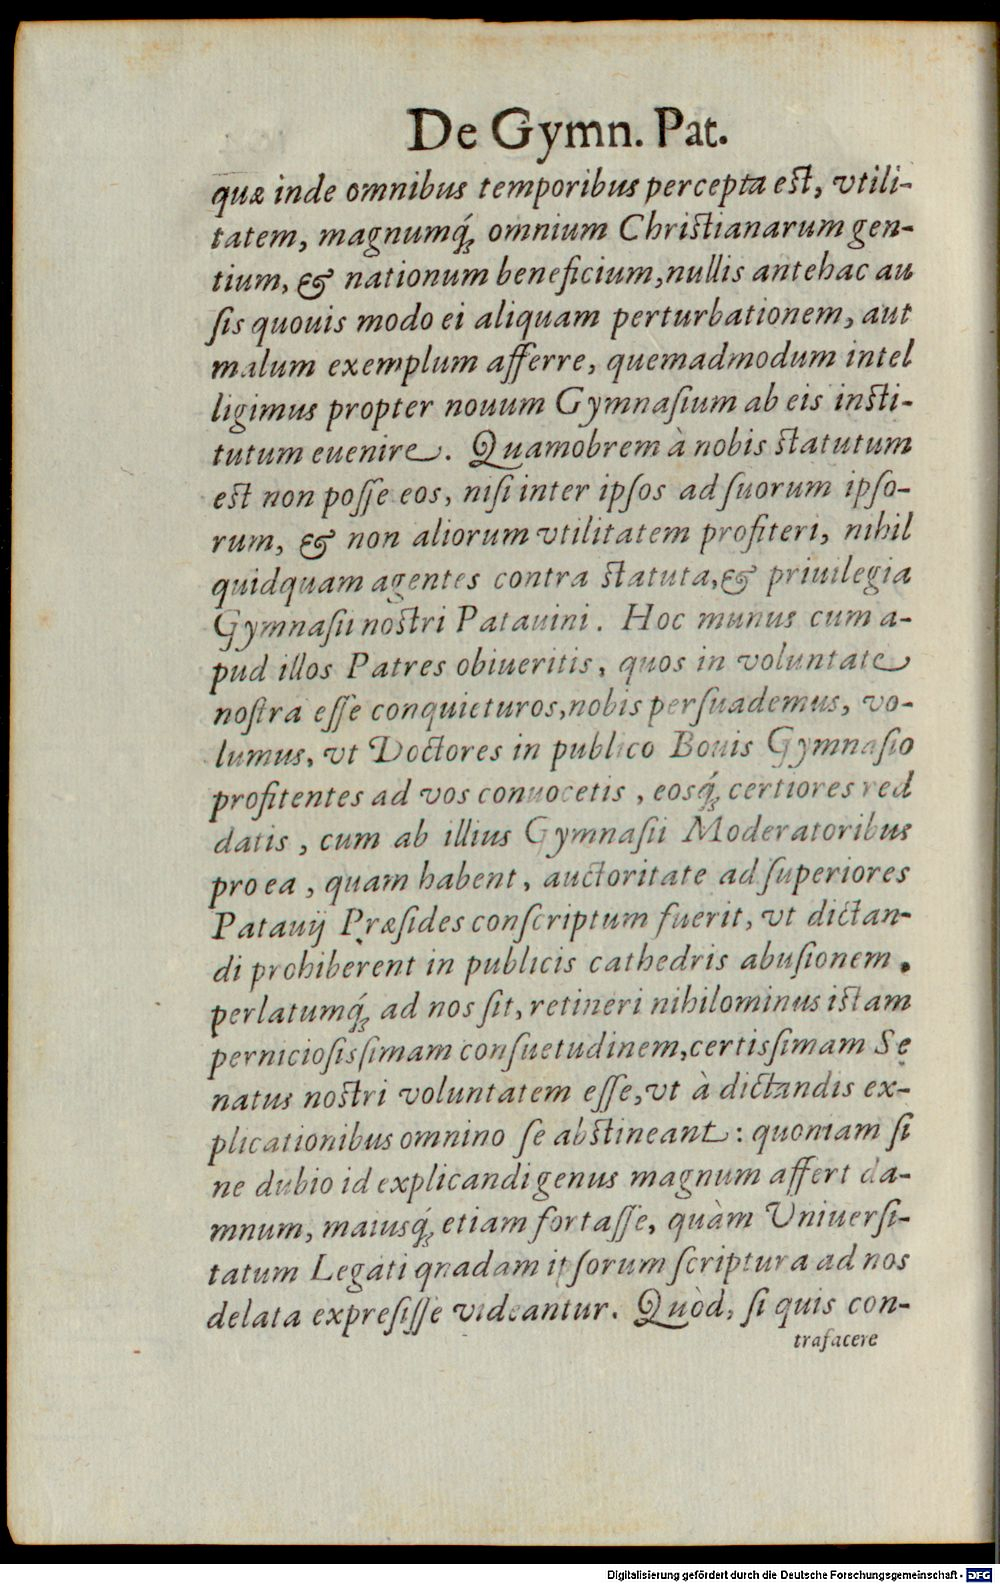 De Gymn. Pat.
quæ inde omnibus temporibus percepta est, vtili-
tatem, magnumq́ꝫ omnium Christianarum gen-
tium, & nationum beneficium, nullis antehac au
ſis quouis modo ei aliquam perturbationem, aut
malum exemplum afferre, quemadmodum intel
ligimus propter nouum Gymnaſium ab eis insti-
tutum euenire. Quamobrem à nobis statutum
est non poſſe eos, niſi inter ipſos ad ſuorum ipſo-
rum, & non aliorum vtilitatem profiteri, nihil
quidquam agentes contra statuta, & priuilegia
Gymnaſii nostri Patauini. Hoc munus cum a-
pud illos Patres obiueritis, quos in voluntate
noſtra eſſe conquieturos, nobis perſuademus, vo-
lumus, vt Doctores in publico Bouis Gymnaſio
profitentes ad vos conuocetis, eosq́ꝫ certiores red
datis, cum ab illius Gymnaſii Moderatoribus
pro ea, quam habent, auctoritate ad ſuperiores
Patauij Præſides conſcriptum fuerit, vt dictan-
di prohiberent in publicis cathedris abuſionem.
perlatumq́ꝫ ad nos ſit, retineri nihilominus istam
pernicioſisſimam conſuetudinem, certisſimam Se
natus nostri voluntatem eſſe, vt à dictandis ex-
plicationibus omnino ſe abstineant: quoniam ſi
ne dubio id explicandi genus magnum affert da-
mnum, maiusq́ꝫ etiam fortaſſe, quàm Vniuerſi-
tatum Legati qnadam ipſorum ſcriptura ad nos
delata expreſiſſe videantur. Quòd, ſi quis con-
trafacere
Digitalisierung gefördert durch die Deutsche Forschungsgemeinschaft - DFG